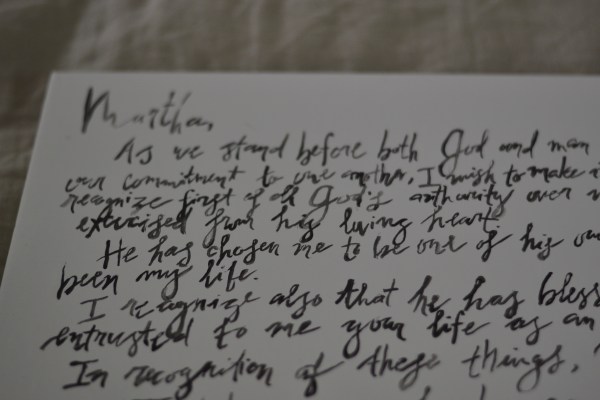 Martha,
As we stand before both God and man
our commitment to one another, I wish to make
recognize first of all God's authority over
exercised from his loving heart.
He has chosen me to be one of his
been my life.
I recognize also that he has bless
entrusted to me your life as an
In recognition of these things,